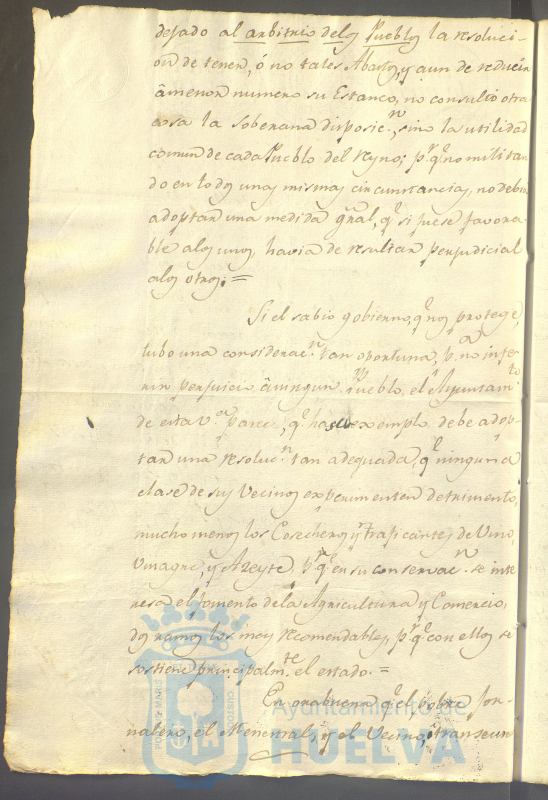 dejado al arbitrio delos Pueblos la resoluci-
ón de tener, ó no tales Abastos, y aun de reducir
â menor numero su Estanco, no consultó otra
cosa la soberana disposicn, sino la utilidad
comun de cada Pueblo del reyno; pr qe no militan-
do en todos unas mismas circunstancias, no debia
adoptar una medida gral, qe si fuese favora-
ble alos unos, havia de resultar perjudicial
alos otros. =
Si el sabio gobierno, qe nos protege,
tubo una consideracn tan oportuna, pa no infe-
rir perjuicio â ningun Pueblo, el Ayuntamto
de esta Va parece, qe ha su exemplo debe adop-
tar una resolucn tan adequada, qe ninguna
clase de sus Vecinos experimenten detrimento,
mucho menos los Cosecheros y traficantes de Vino,
Vinagre, y Azeyte, pr qe en su conservacn se inte-
resa el fomento dela Agricultura y Comercio,
dos ramos los mas recomendables, pr qe con ellos se
sostiene principalmte el estado. =
En orabuena qe el pobre jor-
nalero, el Menestral, y el Vecino transeun
PORTUS MARIS CUSTODIA
Ayuntamiento de
HUELVA